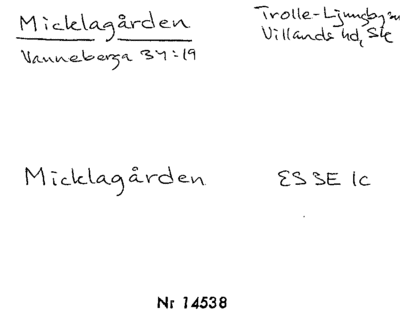 Micklagården
Vanneberga 34:19
Trolle-Ljungby sn
Villands hd, Sk
Micklagården
ESSE 1c
Nr 14538